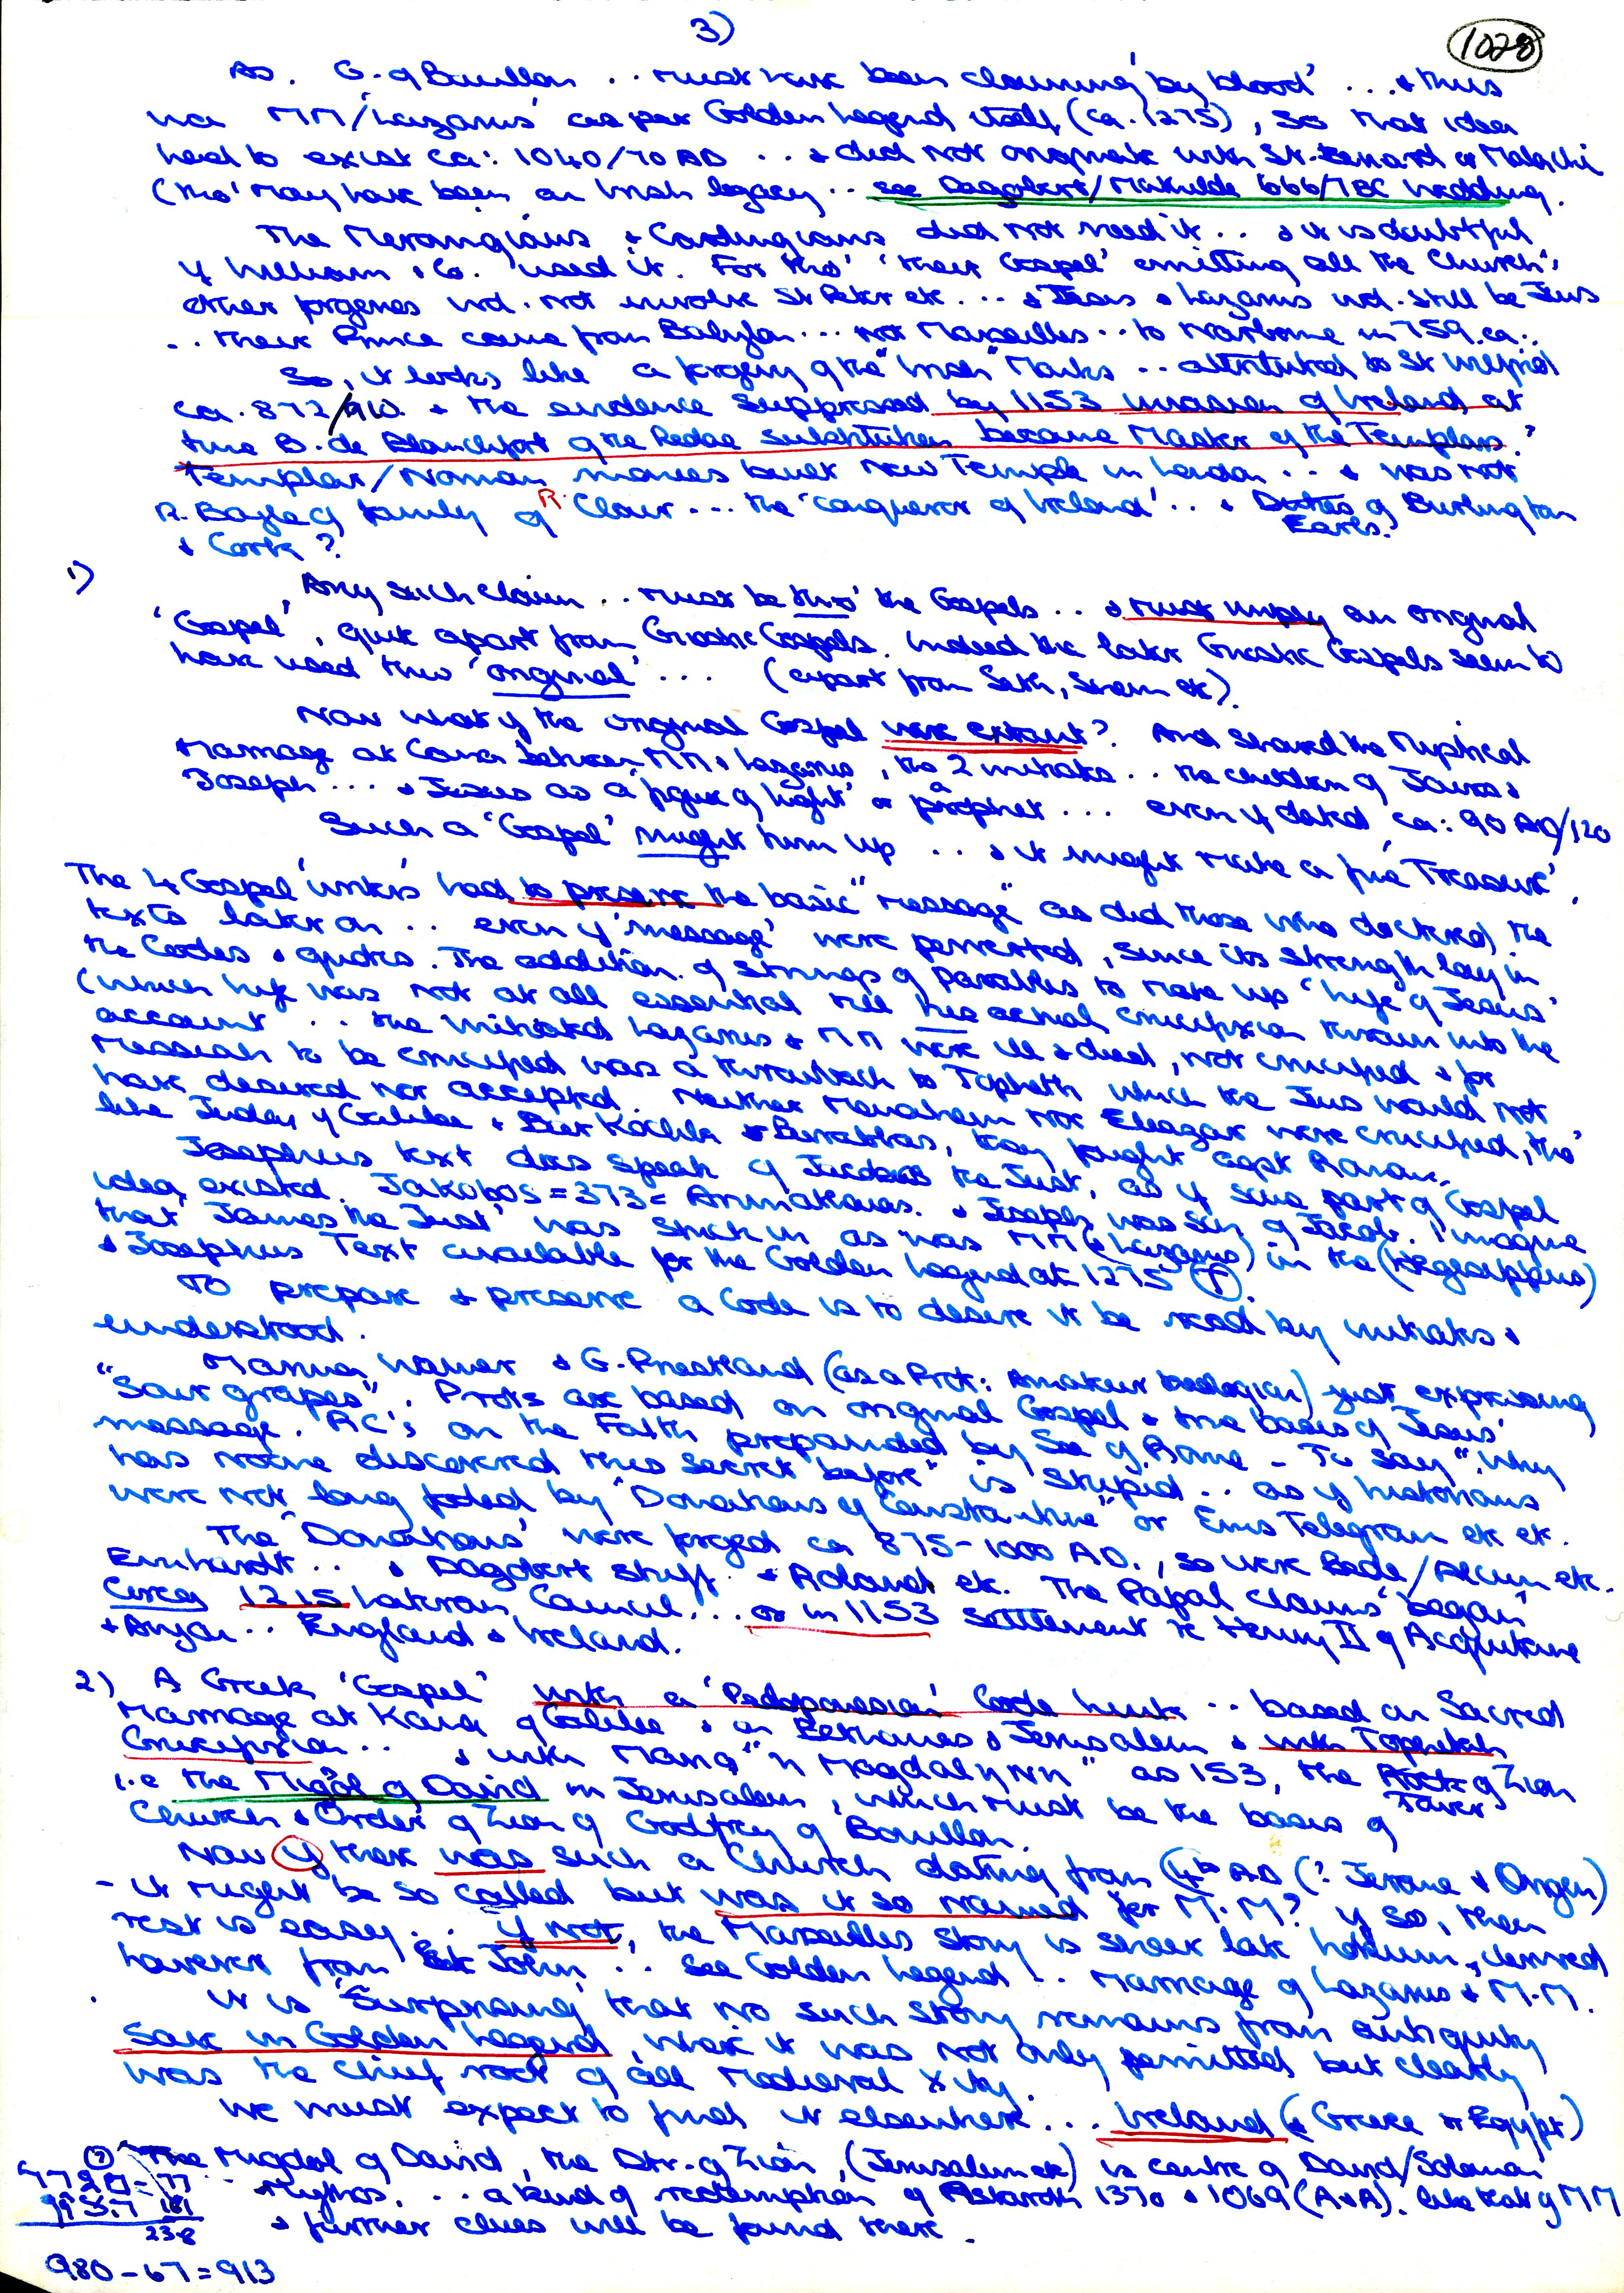 3)
1028
As. G. of Bouillon .. must have been claiming 'by blood' ... & thus
via MM/'Lazarus' as per Golden Legend itself (ca. 1275), so that idea
had to exist ca: 1040/70 AD .. & did not originate with St. Bernard or Malachi
(tho' may have been an Irish legacy .. see Dagobert/Mathilde 666/TBC wedding.
The Merovingians & Carolingians did not need it .. & it is doubtful
if William & Co. used it. For tho' 'their Gospel' omitting all the Church's
other forgeries wd. not involve St Peter etc ... & Jesus & Lazarus wd. still be Jews
.. their Prince came from Babylon ... not Marseilles .. to Narbonne in 759. ca:.
So, it looks like a forgery of the "Irish" Monks .. attributed to St Wilfrid
ca. 872/910 & the evidence suppressed by 1153 invasion of Ireland at
time B. de Blanchfort of the Redae substitution became Master of the Templars?
Templar/Norman monies built New Temple in London .. & was not
R. Boyle of family of R. Clare ... the 'conqueror of Ireland' .. & of Burlington
Earls.
& Cork?
1) Any such claim .. must be thro' the Gospels .. & must imply an original
'Gospel', quite apart from Gnostic Gospels. Indeed the later Gnostic Gospels seem to
have used this 'original' ... (apart from Seth, Shem etc).
Now what if the original Gospel were extant? And showed the Mystical
Marriage at Cana between MM & Lazarus, the 2 initiates .. the children of Jairus &
Joseph ... & Jesus as a 'figure of light' or a prophet ... even if dated ca: 90 AD/120
Such a 'Gospel' might turn up .. & it might make a fine 'Treasure'.
The 4 Gospel 'writers' had to preserve the basic "message" as did those who doctored the
texts later on .. even if 'message' were perverted, since its strength lay in
the Codes & quotes. The addition of strings of Parables to make up 'Life of Jesus'
(which life was not at all essential till his actual crucifixion thrown into the
account .. the initiated Lazarus & MM were ill & died, not crucified & for
Messiah to be crucified was a throwback to Topheth which the Jews would not
have desired nor accepted. Neither Menahem nor Eleazar were crucified, tho'
like Judas of Galilee & Bar Kochba & Barabbas, they fought agst Romans.
Josephus text does speak of the Just, as if some part of Gospel
idea existed. Jakobos = 373 = Arimatheas. & Joseph was son of Jacob. I imagine
that 'James the Just' was stuck in as was MM (& Lazarus) in the (Hegesippus)
& Josephus Text available for the Golden Legend at 1275 (?).
To prepare & preserve a Code is to desire it be read by initiates &
understood.
Marina Warner & G. Priestland (as a Prot: Amateur theologian) just expressing
"Sour grapes". Prots are based on original Gospel & the basis of Jesus'
message. RC's on the Faith propounded by See of Rome – To say "Why
has no one discovered this secret before" is stupid .. as if historians
were not long fooled by "Donations of Constantine" or Ems Telegram etc etc.
The 'Donations' were forged ca 875–1000 AD., so were Bede/Alcuin etc.
Einhardt .. & Dagobert stuff .. & Roland etc. The Papal claims 'began'
Circa 1215 Lateran Council ... or in 1153 settlement re Henry II of Acquitaine
& Anjou .. England & Ireland.
2) A Greek 'Gospel' with a Code hunt .. based on Sacred
Marriage at Kana of Galilee & on Bethanies & Jerusalem & with Topheth
Crucifixion .. & with Maria "η Μαγδαληνη" as 153, the Rock of Zion
Tower
i.e the Migdol of David in Jerusalem, which must be the basis of
Church & Order of Zion of Godfrey of Bouillon.
Now if there was such a Church dating from 4th AD (? Jerome & Origen)
- it might be so called but was it so named for M.M? If so, then
rest is easy .. if not, the Marseilles story is sheer late hokum, derived
however from St John .. see Golden Legend .. Marriage of Lazarus & M.M.
It is 'surprising' that no such story remains from antiquity
save in Golden Legend, where it was not only permitted but clearly
was the chief root of all Medieval Xity.
We must expect to find it elsewhere ... Ireland (& Greece or Egypt)
(?) The Migdol of David, the Dtr. of Zion, (Jerusalem etc) is centre of David/Solomon
Mythos. .. a kind of redemption of Astaroth 1370 & 1069 (A & A). like that of MM
& further clues will be found there.
77
161
238
980 – 67 = 913